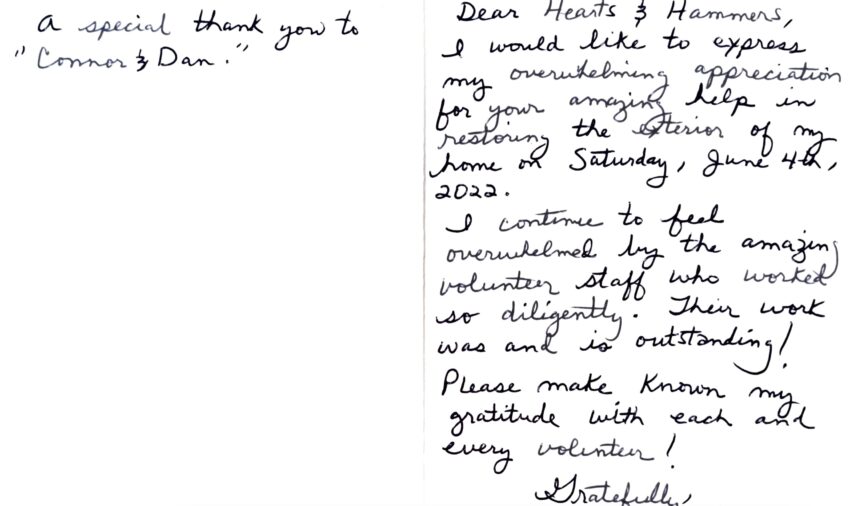 A special thank you to
"Connor & Dan."
Dear Hearts & Hammers,
I would like to express
my overwhelming appreciation
for your amazing help in
restoring the exterior of my
home on Saturday, June 4th,
2022.
I continue to feel
overwhelmed by the amazing
volunteer staff who worked
so diligently. Their work
was and is outstanding!
Please make known my
gratitude with each and
every volunteer!
Gratefully,